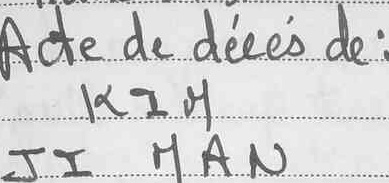 Acte de décès de:
KIM
JI MAN